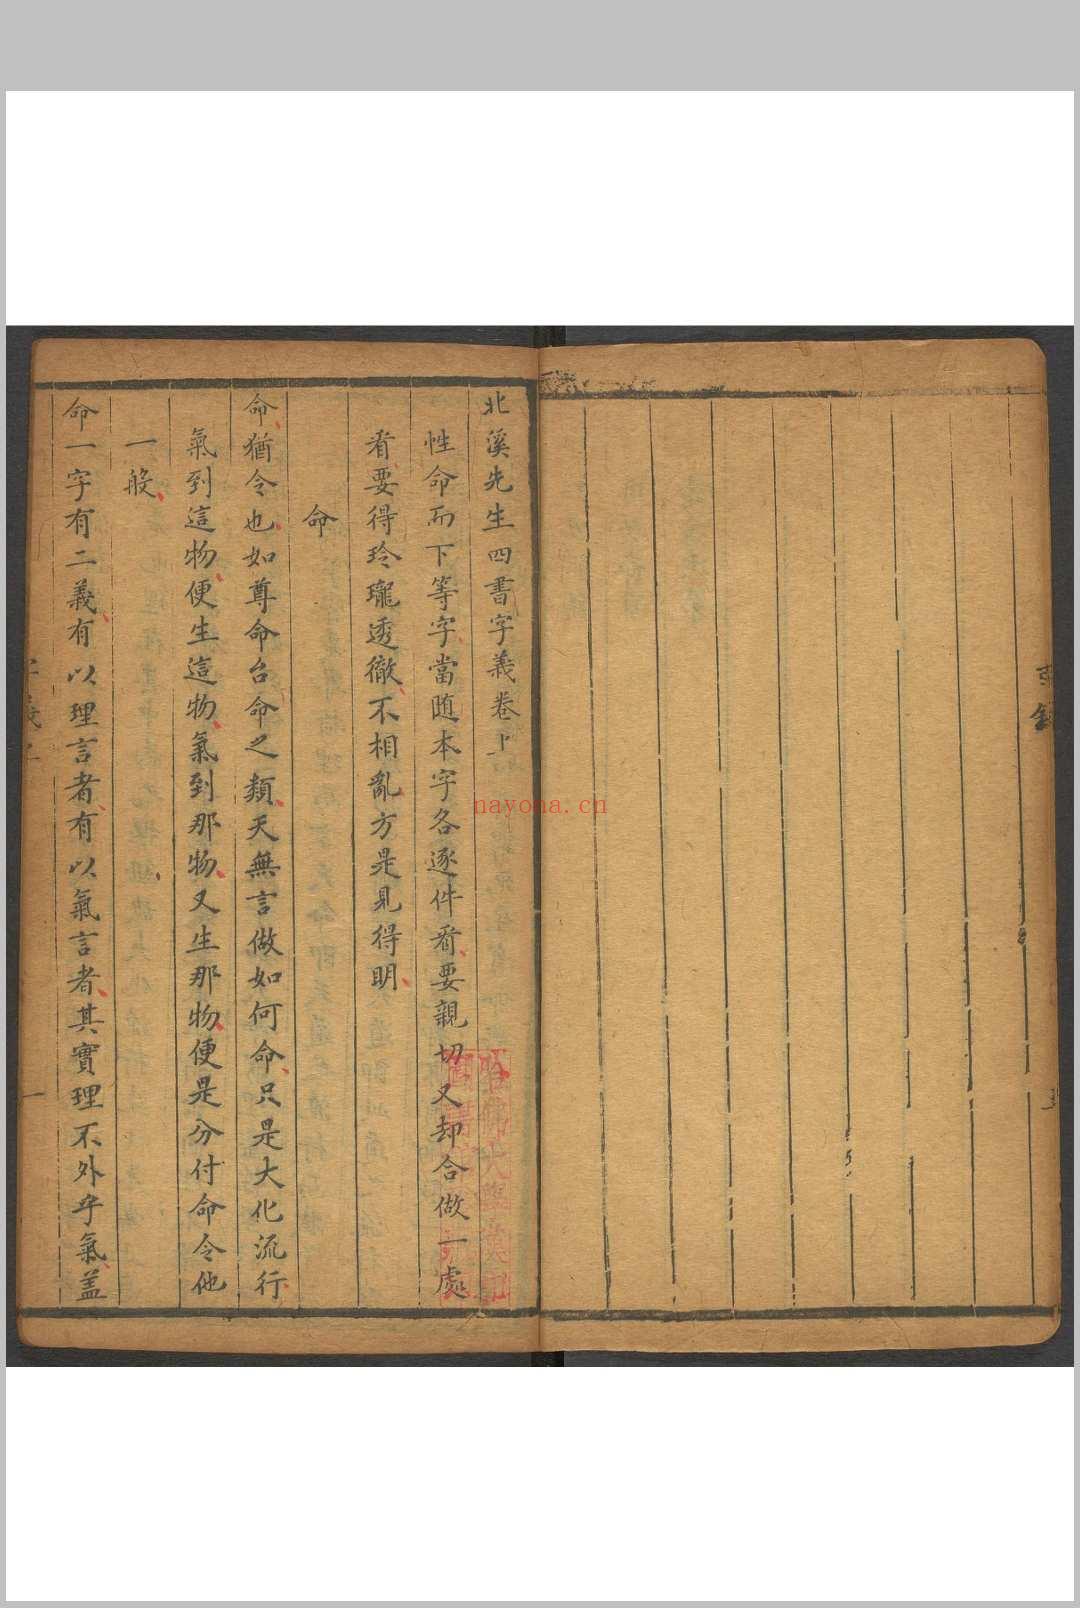 北溪先生四書字義卷上
性命而下等字當随本字各逐件看要親切又却合做一處
看要得玲瓏透徹不相亂方是見得明
命
命猶令也如尊命台命之類天無言做如何命只是大化流行
氣到這物便生這物氣到那物又生那物便是分付命令他
一般
命一字有二義有以理言者有以氣言者其實理不外乎氣盖
一
nayona.cn